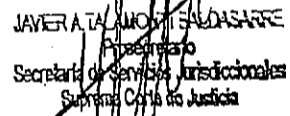 JAVIER A. 
Prosecretario
Secretaría de Servicios Jurisdiccionales
Suprema Corte de Justicia